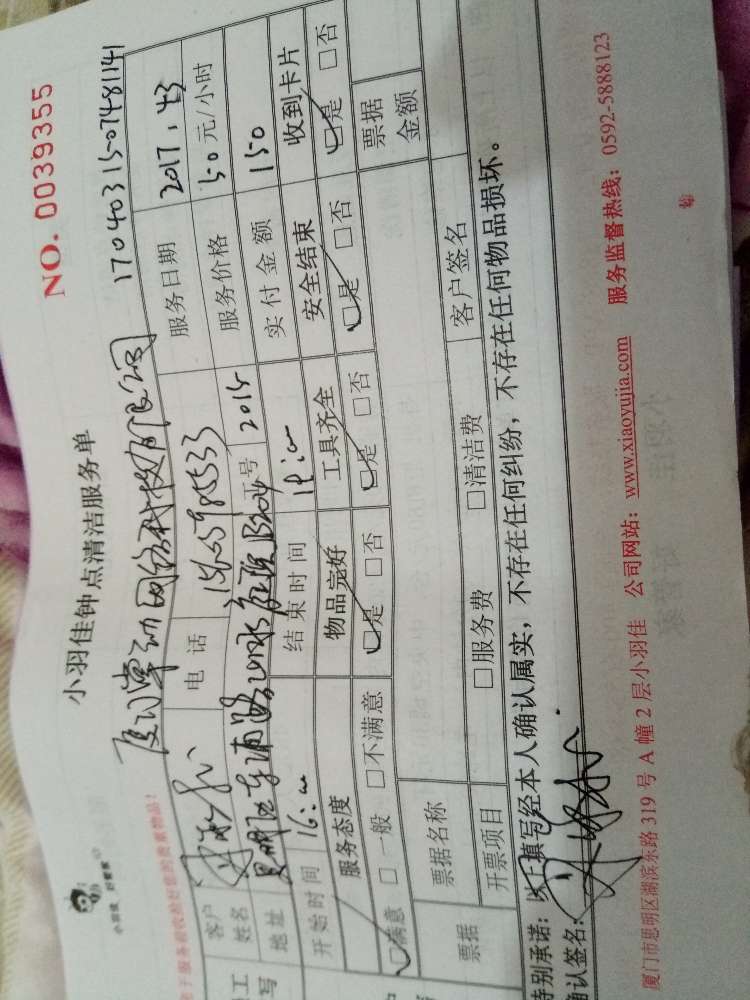 NO. 0039355
小羽佳钟点清洁服务单
1704031507481141
客户姓名
电话
服务日期 2017.4.3
地址
工号 2015
服务价格 50元/小时
开始时间 16:00
结束时间 19:00
实付金额 150
服务态度
物品完好
工具齐全
安全结束
收到卡片
□满意 □一般 □不满意
□是 □否
□是 □否
□是 □否
□是 □否
票据
票据名称
票据金额
开票项目
□服务费
□清洁费
客户签名
特别承诺：以上填写经本人确认属实，不存在任何纠纷，不存在任何物品损坏。
确认签名：
厦门市思明区湖滨东路 319 号 A 幢 2 层小羽佳 公司网站：www.xiaoyujia.com 服务监督热线：0592-5888123